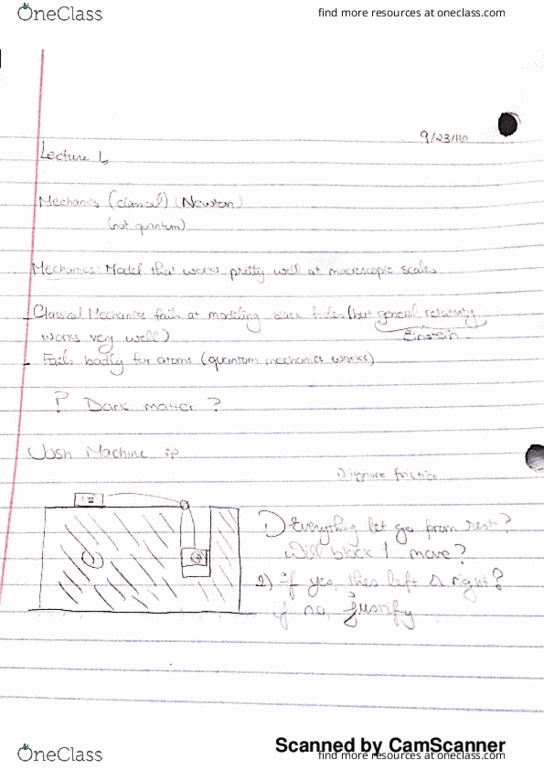 OneClass find more resources at oneclass.com
9/23/
Lecture 1
Mechanics (classical) (Newton)
(not quantum)
Mechanics: Model that works pretty well at macroscopic scales
- Classical Mechanics fails at modeling black holes (but general relativity
works very well) Einstein
- Fails badly for atoms (quantum mechanics works)
? Dark matter ?
Machine
ignore friction
1) Everything let go from rest?
Will block 1 move?
2) if yes, then left or right?
if no, justify
2
1
3
Scanned by CamScanner
OneClass find more resources at oneclass.com